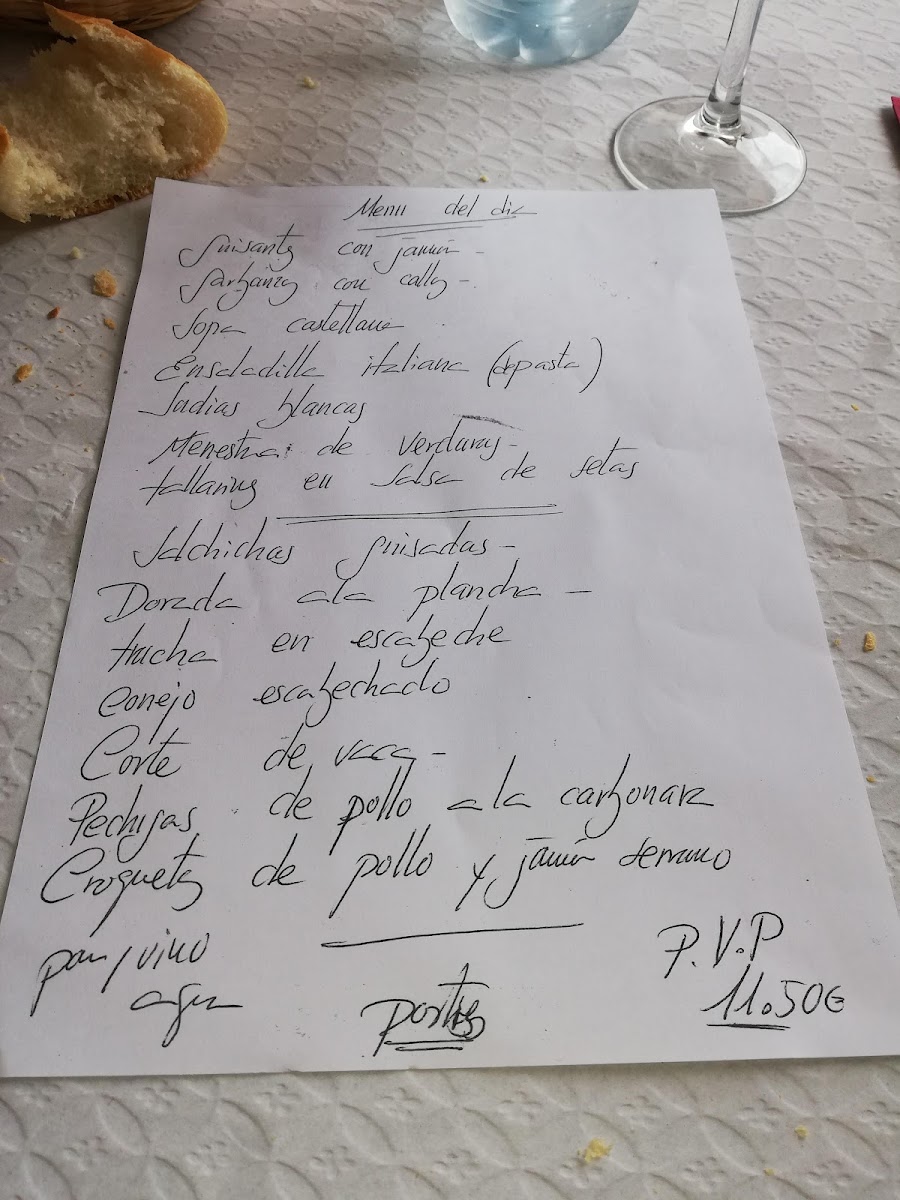 Menu del dia
Guisantes con jamón -
Garbanzos con callos -
Sopa castellana
Ensaladilla italiana (de pasta)
Judias blancas
Menestra de verduras -
tallarines en salsa de setas
Salchichas guisadas -
Dorada a la plancha -
trucha en escabeche
conejo escabechado
Corte de vaca -
Pechugas de pollo a la carbonara
Croquetas de pollo y jamón serrano
pan, vino
agua
postres
P.V.P
11.50€